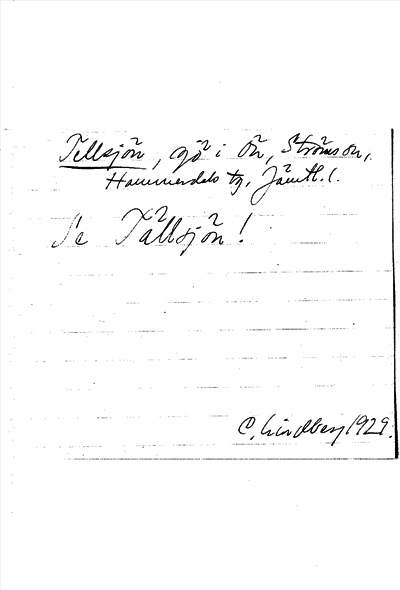 Tellsjön, gö i ön, Ströms sn,
Hammerdals tg, Jämtl. l.
Se Tällsjön!
C. Lindberg 1929.